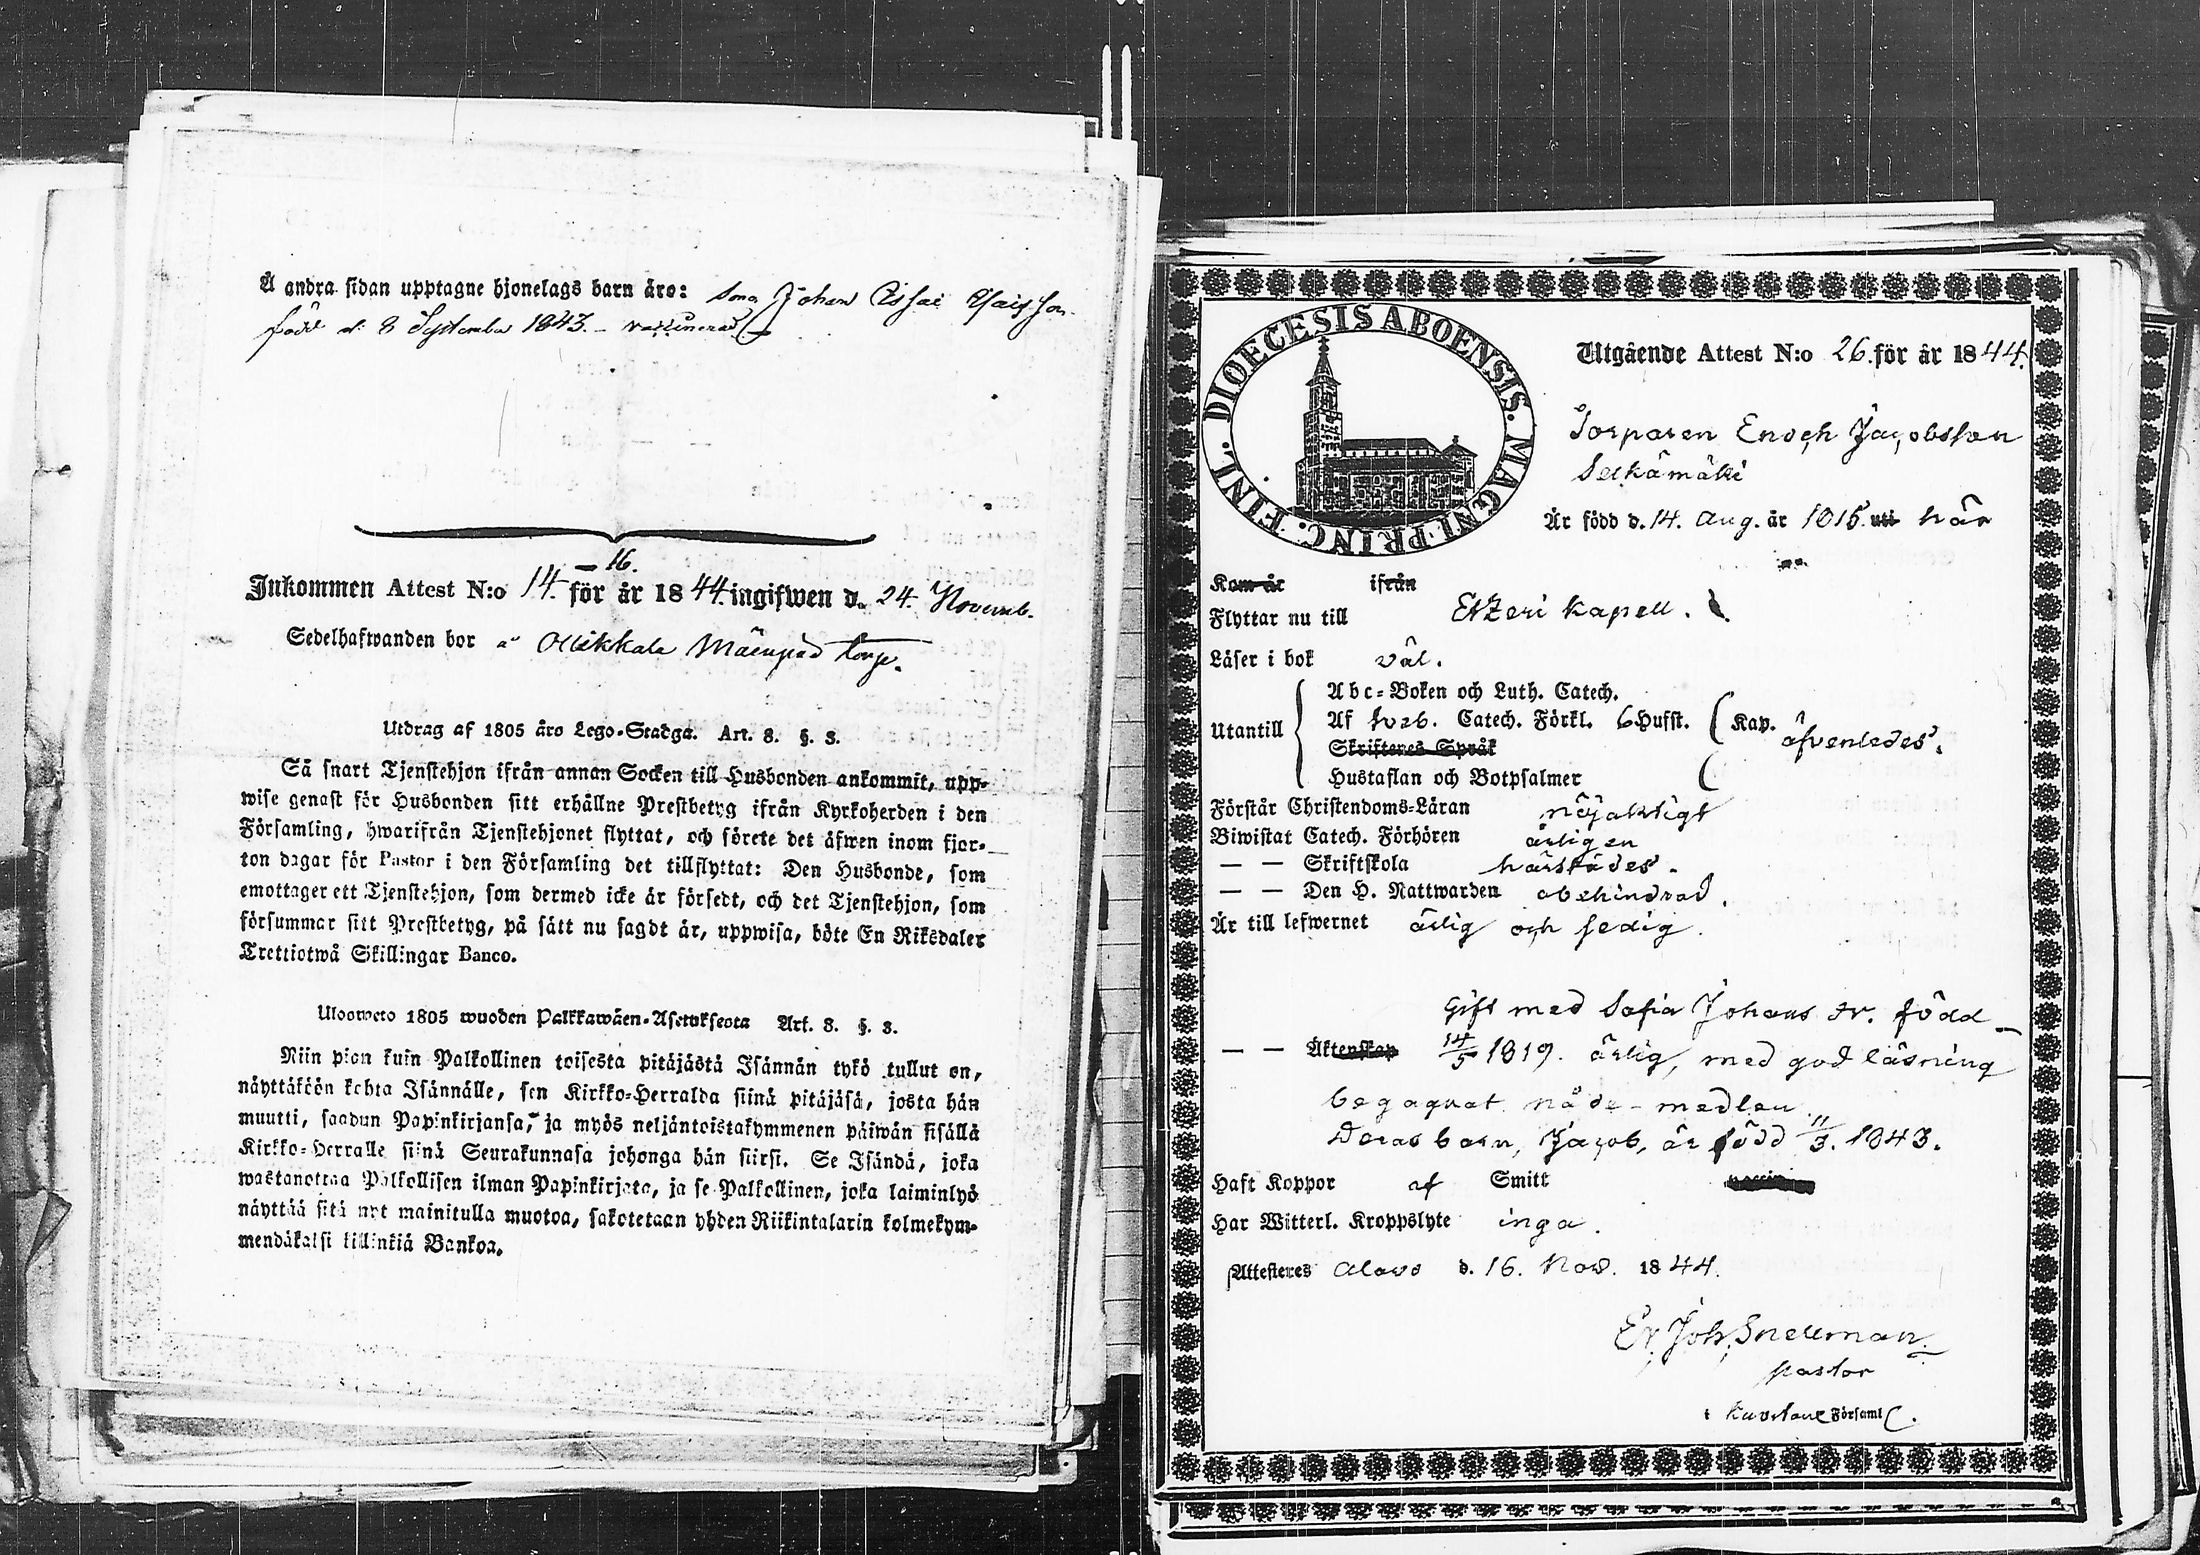 Å andra sidan upptagne hjonelags barn äro: Son Johan Essai Esaisson
född d: 8 September 1843. – vaccinerad
16.
Inkommen Attest N:o 14. för år 1844. ingifwen d. 24. Novemb.
Sedelhafwanden bor å Ollikkala Mäenpää torp.
Utdrag af 1805 års Lego-Stadga. Art. 8. §. 8.
Så snart Tjenstehjon ifrån annan Socken till Husbonden ankommit, upp-
wise genast för Husbonden sitt erhållne Prestbetyg ifrån Kyrkoherden i den
Församling, hwarifrån Tjenstehjonet flyttat, och förete det äfwen inom fjor-
ton dagar för Pastor i den Församling det tillflyttat: Den Husbonde, som
emottager ett Tjenstehjon, som dermed icke är försedt, och det Tjenstehjon, som
försummar sitt Prestbetyg, på sätt nu sagdt är, uppwisa, böte En Riksdaler
Trettiotwå Skillingar Banco.
Ulosweto 1805 wuoden Palkkawäen-Asetuksesta Art. 8. §. 8.
Niin pian kuin Palkollinen toisesta pitäjästä Isännän tykö tullut on,
näyttäköön kohta Isännälle, sen Kirkko-Herralda siinä pitäjäsä, josta hän
muutti, saadun Papinkirjansa, ja myös neljäntoistakymmenen päiwän sisällä
Kirkko-Herralle siinä Seurakunnasa johonga hän siirsi. Se Isändä, joka
wastanottaa Palkollisen ilman Papinkirjata, ja se Palkollinen, joka laiminlyö
näyttää sitä nyt mainitulla muotoa, sakotetaan yhden Riikintalarin kolmekym-
mendäkaksi killinkiä Bankoa.
DIOECESIS ABOENSIS. MAGNI PRINC. FINL.
Utgående Attest N:o 26. för år 1844.
Torparen Enoch Jacobsson
Selkämäki
Är född d. 14. Aug. år 1815. uti här
Kom år ifrån
Flyttar nu till Etzeri kapell.
Läser i bok väl.
Utantill
Abc-Boken och Luth. Catech.
Af Sveb. Catech. Förkl. 6 Hufst. Kap. äfvenledes.
Skriftenes Språk
Hustaflan och Botpsalmer
Förstår Christendoms-Läran nöjaktigt
Biwistat Catech. Förhören årligen
— — Skriftskola härstädes.
— — Den H. Nattwarden obehindrad.
Är till lefwernet ärlig och sedig.
Gift med Sofia Johans dr. född
— — Äktenskap 14/5 1819. ärlig, med god läsning
begagnat nåde-medlen.
Deras barn, Jacob, är född 11/3. 1843.
Haft Koppor af Smitt
Har Witterl. Kroppslyte inga.
Attesteres Alavo d. 16. Nov. 1844.
Er. Joh. Snellman
pastor
i Kuortane Församl.